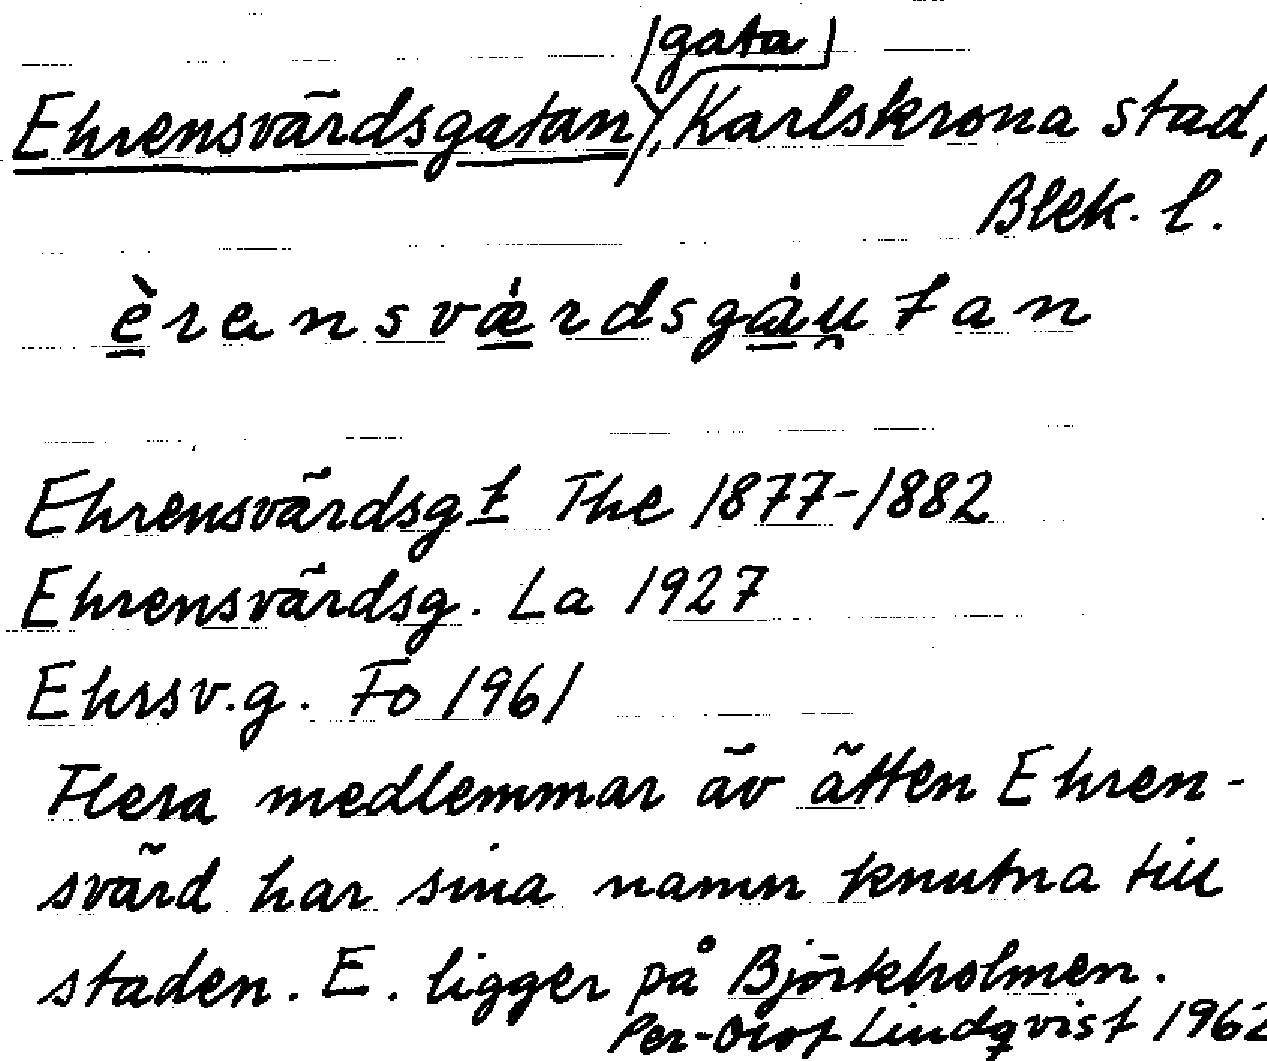 (gata)
Ehrensvärdsgatan, Karlskrona stad,
Blek. l.
èrensvǽrdsgáu̯tan
Ehrensvärdsgt The 1877-1882
Ehrensvärdsg. La 1927
Ehrsv.g. Fo 1961
Flera medlemmar äv ätten Ehren-
svärd har sina namn knutna till
staden. E. ligger på Björkholmen.
Per-Olof Lindqvist 1962